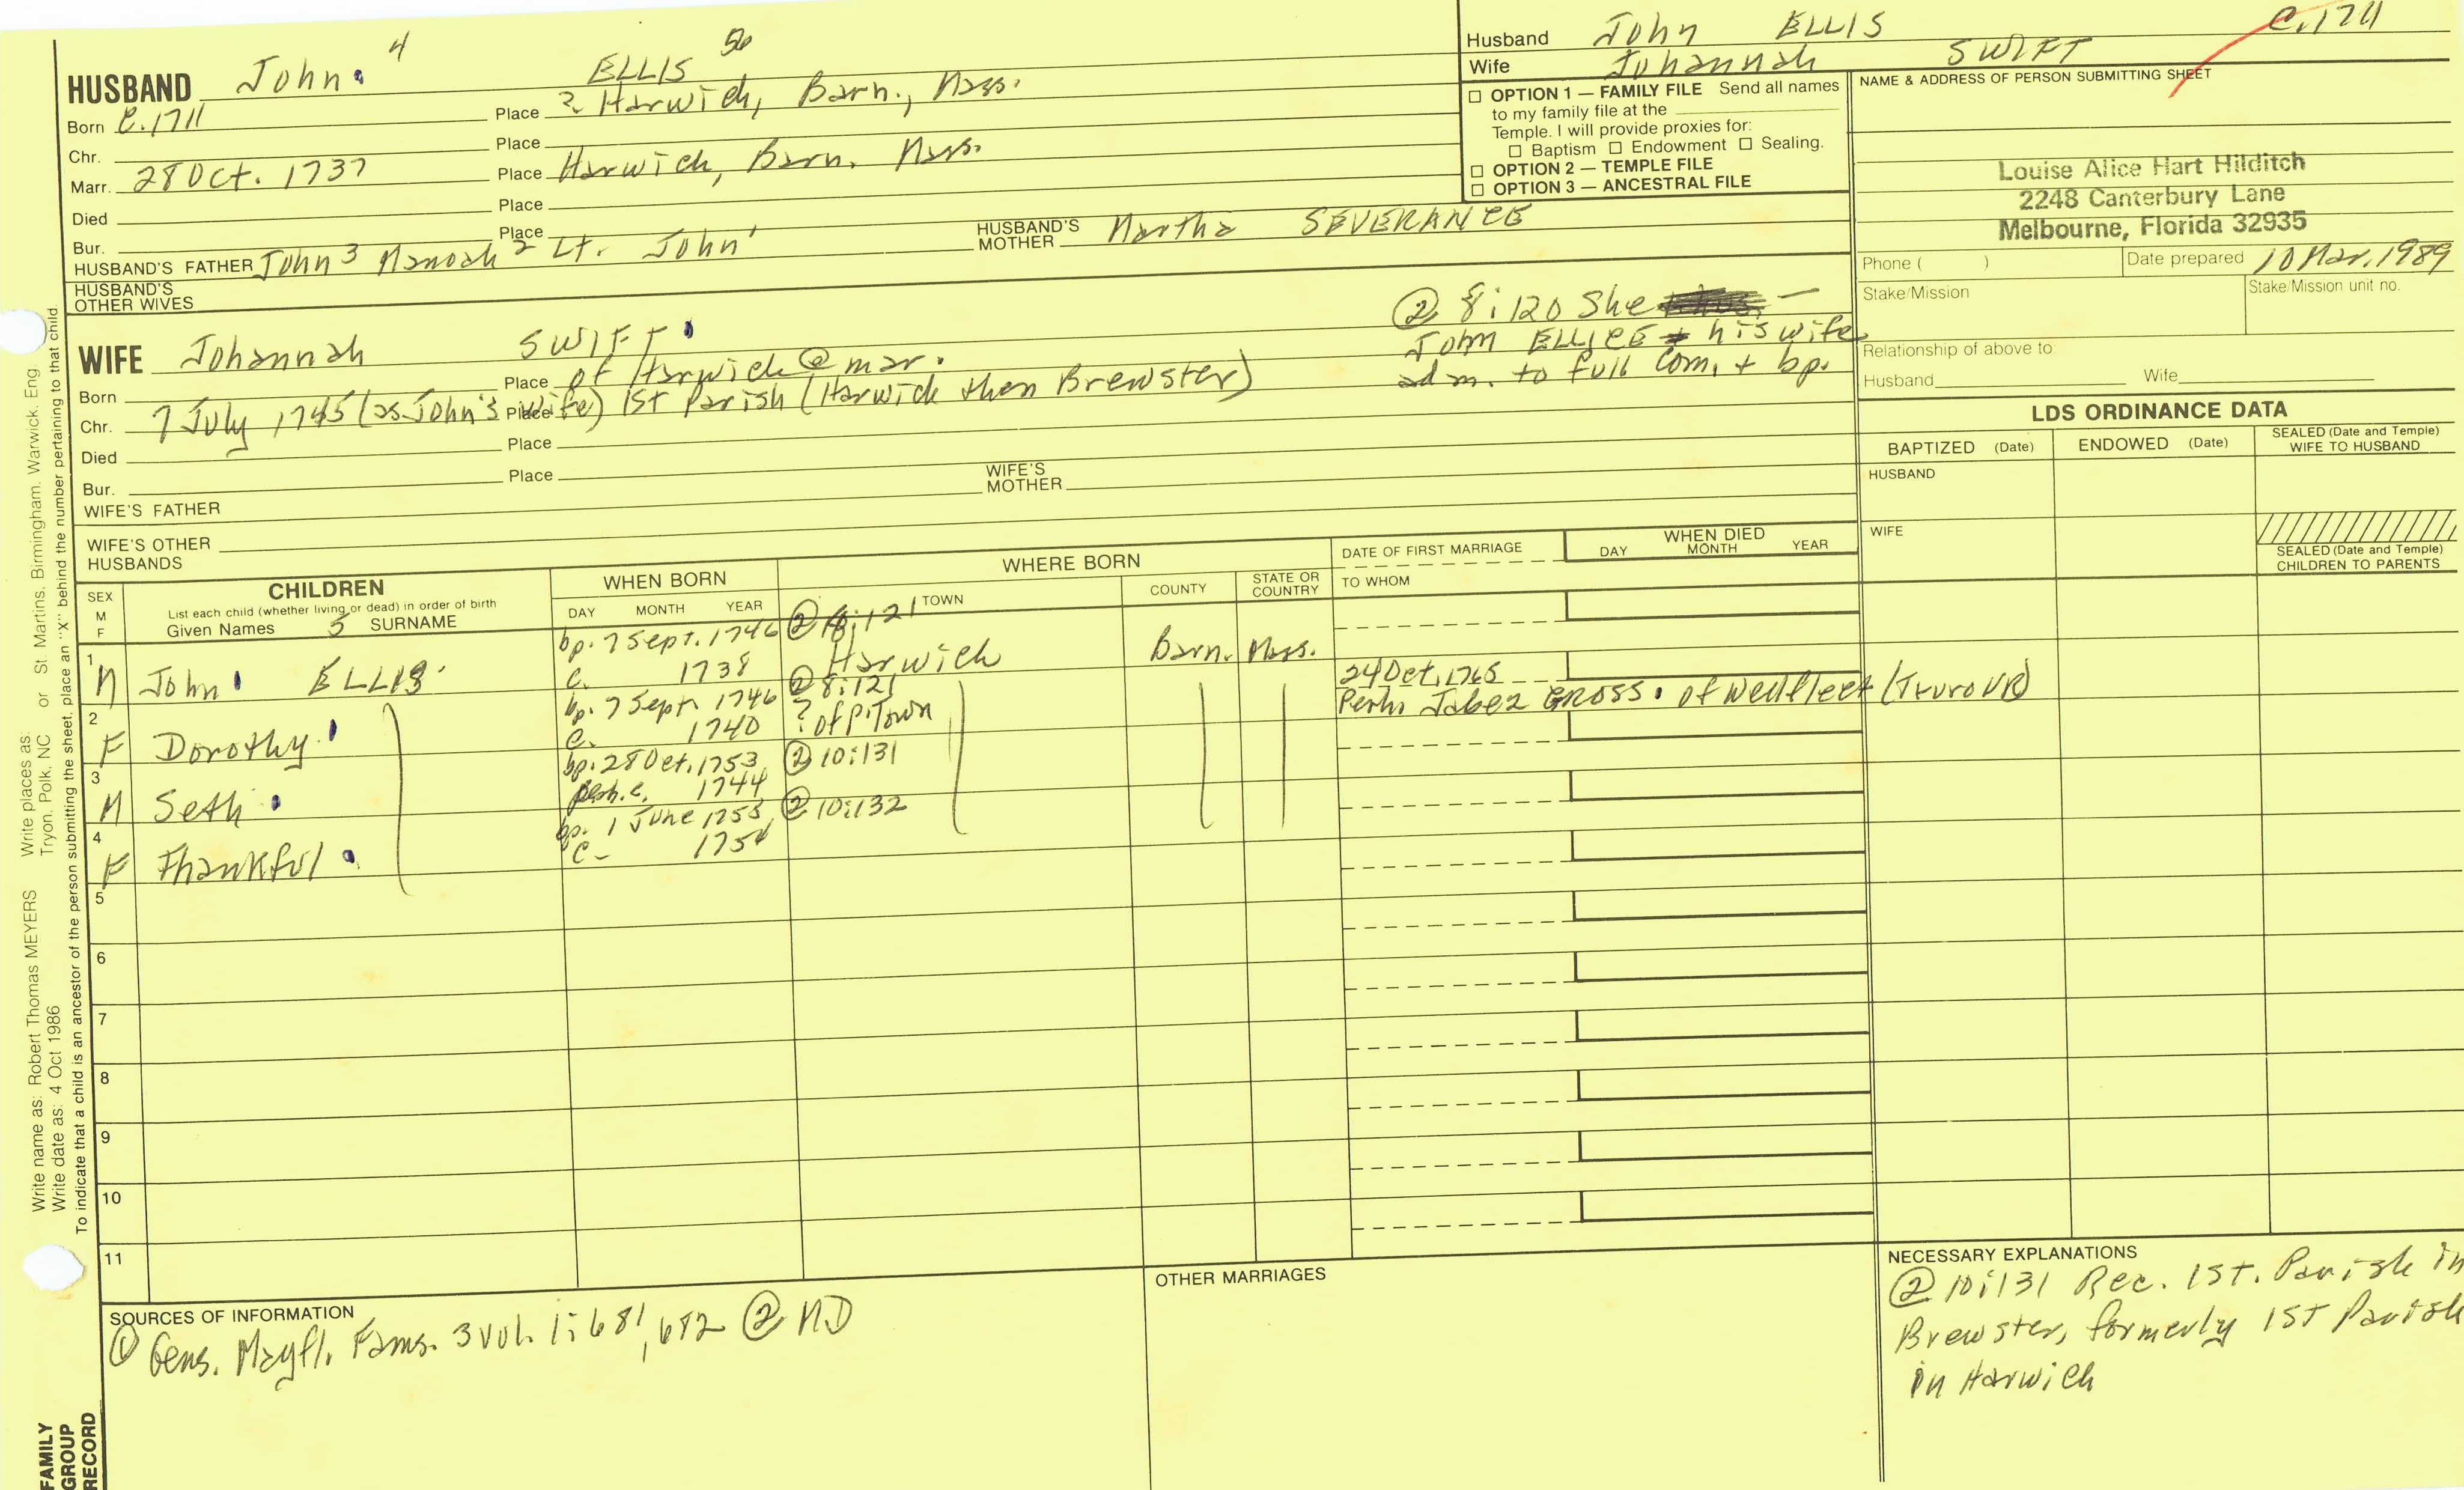 HUSBAND John 4 ELLIS 56
Born C.1711 Place ? Harwich, Barn., Mass.
Chr. Place
Marr. 28 Oct. 1737 Place Harwich, Barn. Mass.
Died Place
Bur. Place
HUSBAND'S FATHER John 3 Manoah 2 Lt. John 1 HUSBAND'S MOTHER Martha SEVERANCE
HUSBAND'S OTHER WIVES
WIFE Johannah SWIFT
Born Place of Harwich @ mar.
Chr. 7 July 1745 (as John's wife) Place 1st Parish (Harwich then Brewster)
Died Place
Bur. Place
WIFE'S FATHER WIFE'S MOTHER
WIFE'S OTHER HUSBANDS
② 8:120 She —
John ELLICE + his wife
adm. to full com. + bp.
Husband John ELLIS C.1711
Wife Johannah SWIFT
☐ OPTION 1 — FAMILY FILE Send all names
to my family file at the
Temple. I will provide proxies for:
☐ Baptism ☐ Endowment ☐ Sealing.
☐ OPTION 2 — TEMPLE FILE
☐ OPTION 3 — ANCESTRAL FILE
NAME & ADDRESS OF PERSON SUBMITTING SHEET
Louise Alice Hart Hilditch
2248 Canterbury Lane
Melbourne, Florida 32935
Phone ( ) Date prepared 10 Mar. 1989
Stake/Mission Stake/Mission unit no.
Relationship of above to
Husband Wife
LDS ORDINANCE DATA
BAPTIZED (Date) ENDOWED (Date) SEALED (Date and Temple) WIFE TO HUSBAND
HUSBAND
WIFE
SEALED (Date and Temple)
CHILDREN TO PARENTS
SEX M F
CHILDREN
List each child (whether living or dead) in order of birth
Given Names 5 SURNAME
WHEN BORN
DAY MONTH YEAR
WHERE BORN
TOWN COUNTY STATE OR COUNTRY
DATE OF FIRST MARRIAGE
TO WHOM
WHEN DIED
DAY MONTH YEAR
bp. 7 Sept. 1746 ② 8:121
1 M John ELLIS c. 1738 Harwich Barn. Mass.
bp. 7 Sept. 1746 ② 8:121 24 Oct. 1765
2 F Dorothy c. 1740 ? of P.Town Perh. Jabez GROSS of Wellfleet (Truro VR)
bp. 28 Oct. 1753 ② 10:131
3 M Seth perh. c. 1744
bp. 1 June 1755 ② 10:132
4 F Thankful c- 1754
5
6
7
8
9
10
11
SOURCES OF INFORMATION
① Gens. Mayfl. Fams. 3 vol. 1:681, 682 ② MD
OTHER MARRIAGES
NECESSARY EXPLANATIONS
② 10:131 Rec. 1st. Parish in
Brewster, formerly 1st Parish
in Harwich
Write name as: Robert Thomas MEYERS Write places as: St. Martins, Birmingham, Warwick, Eng
Write date as: 4 Oct 1986 Tryon, Polk, NC or
To indicate that a child is an ancestor of the person submitting the sheet, place an "X" behind the number pertaining to that child
FAMILY
GROUP
RECORD